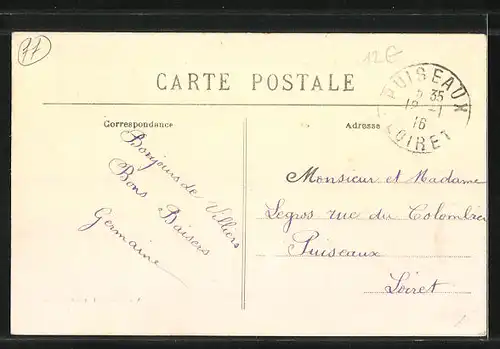 77
12€
CARTE POSTALE
Correspondance
Adresse
PUISEAUX
2 35
12 -1
16
LOIRET
Bonjours de Villiers
Bons Baisers
Germaine
Monsieur et Madame
Legros rue du Colombier
Puiseaux
Loiret